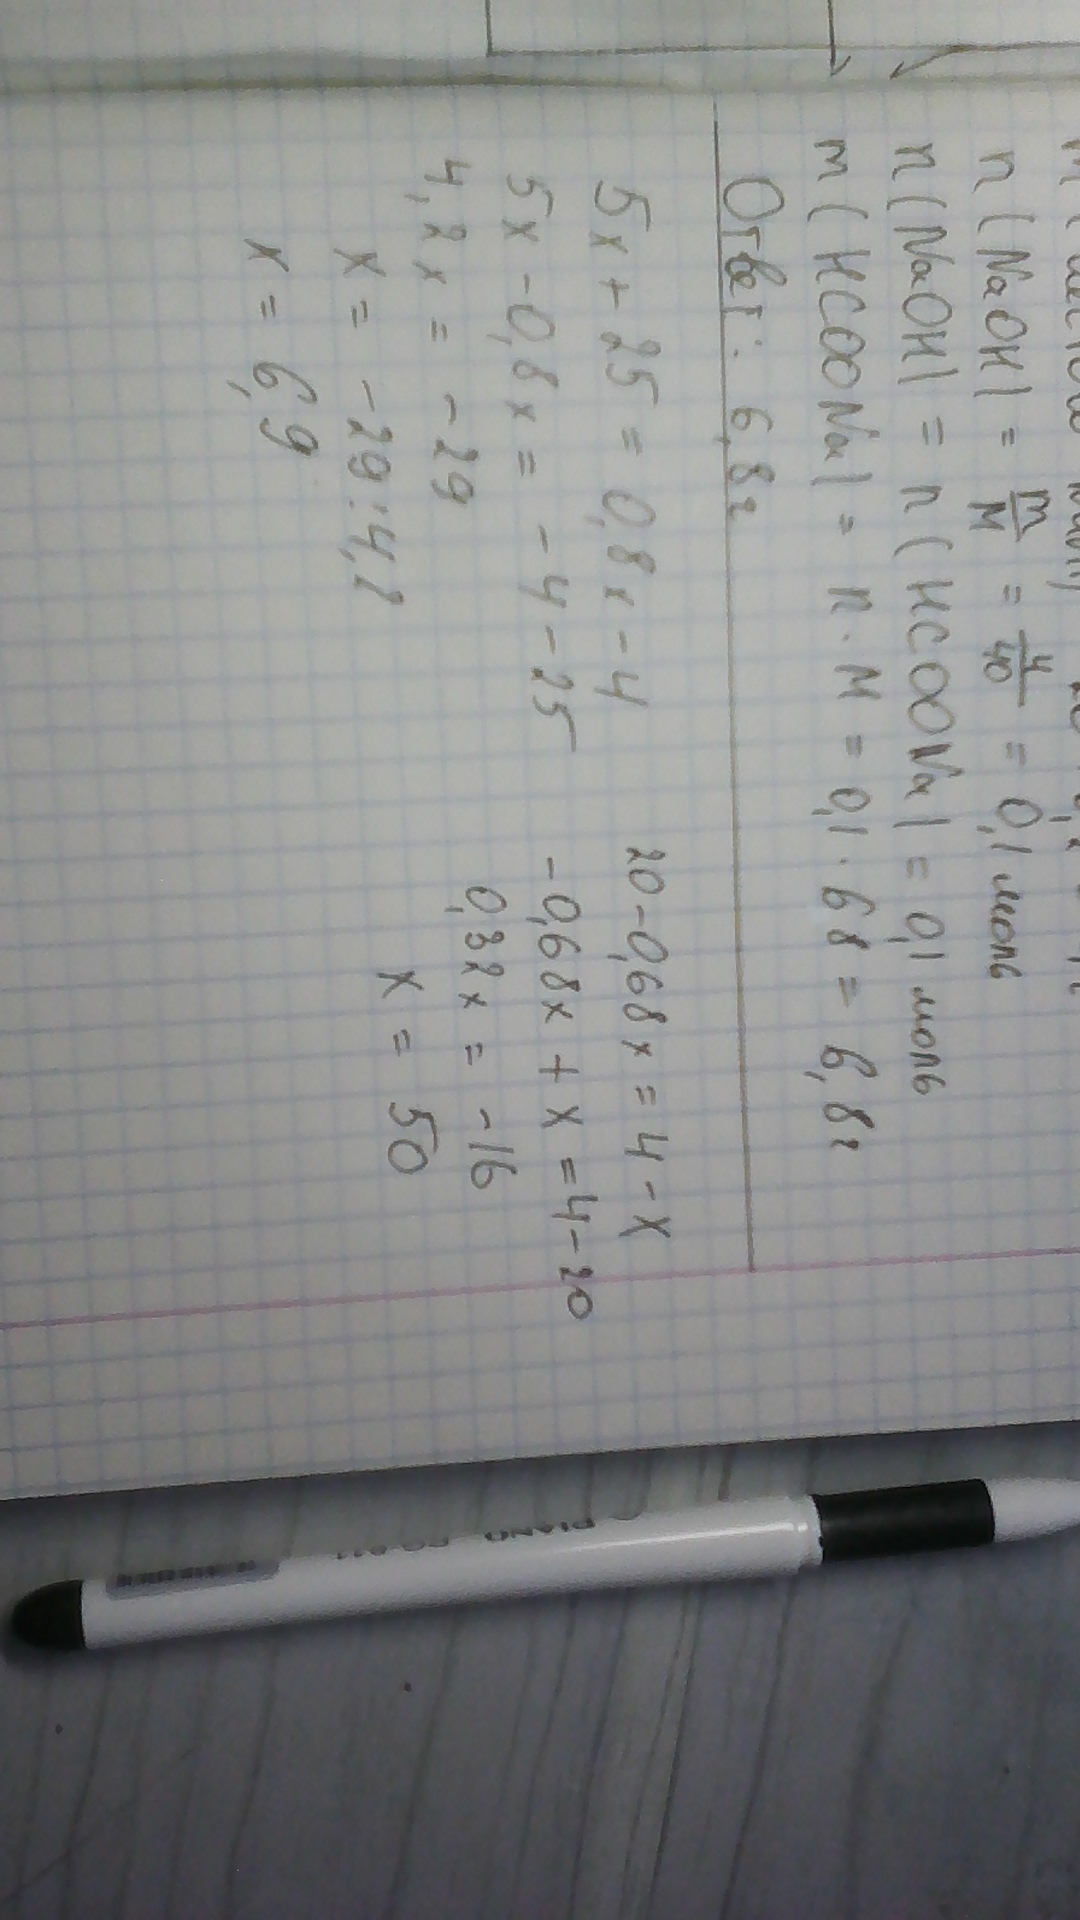 n(NaOH) = m/M = 4/40 = 0,1 моль
n(NaOH) = n(HCOONa) = 0,1 моль
m(HCOONa) = n · M = 0,1 · 68 = 6,8г
Ответ: 6,8г
5x + 25 = 0,8x - 4
5x - 0,8x = -4 - 25
4,2x = -29
x = -29:4,2
x = 6,9
20 - 0,68x = 4 - x
-0,68x + x = 4 - 20
0,32x = -16
x = 50
PIANO